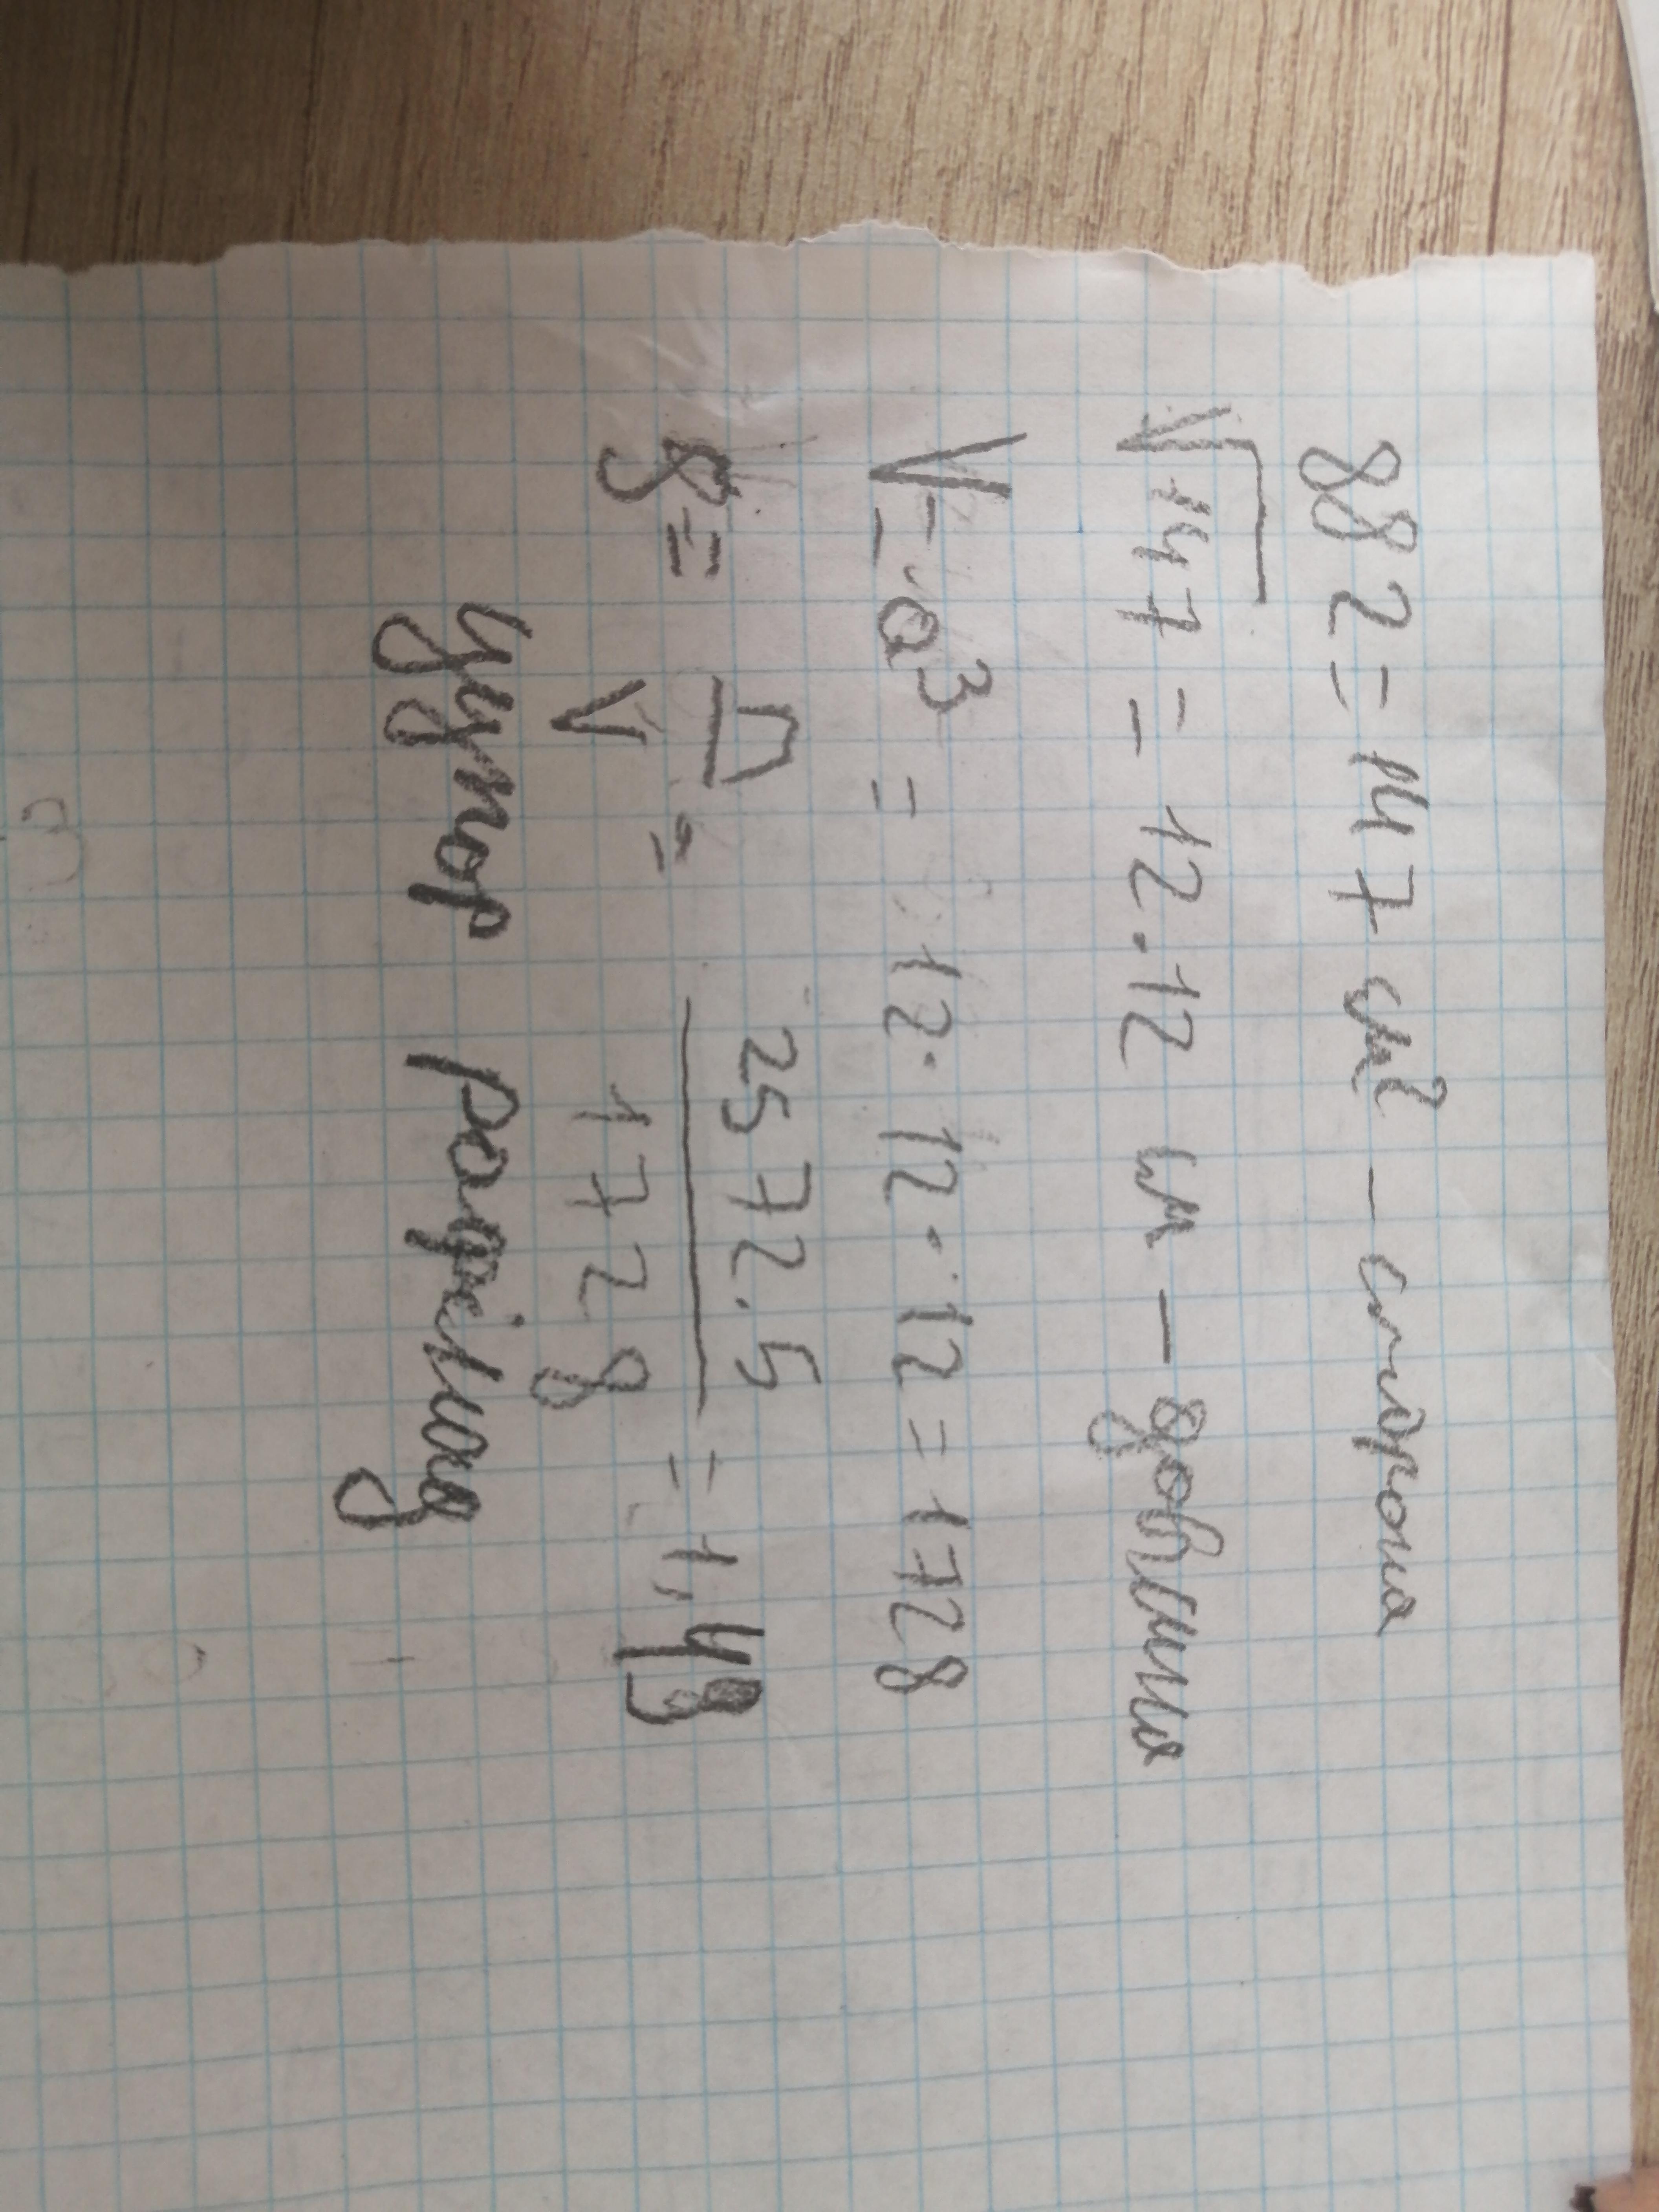 882 = 147 см² - сторона
√147 = 12.12 см - довжина
V = a³ = 12 · 12 · 12 = 1728
g = п/V = 2572.5/1728 = 1,49
цукор рафінад